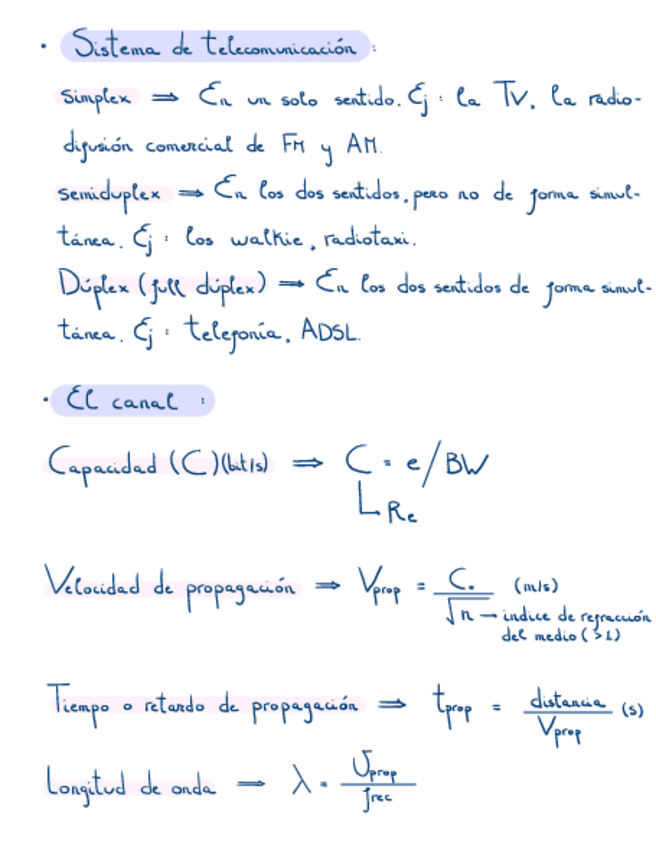 · Sistema de telecomunicación:
Simplex ⇒ En un solo sentido. Ej: la TV, la radio-
difusión comercial de FM y AM.
semiduplex ⇒ En los dos sentidos, pero no de forma simul-
tánea. Ej: los walkie, radiotaxi.
Dúplex (full dúplex) ⇒ En los dos sentidos de forma simul-
tánea. Ej: telefonía, ADSL.
· El canal :
Capacidad (C)(bit/s) ⇒ C = e/BW
Re
Velocidad de propagación ⇒ Vprop = C. / √n (m/s)
→ indice de refracción
del medio (>1)
Tiempo o retardo de propagación ⇒ tprop = distancia / Vprop (s)
Longitud de onda ⇒ λ = Vprop / frec